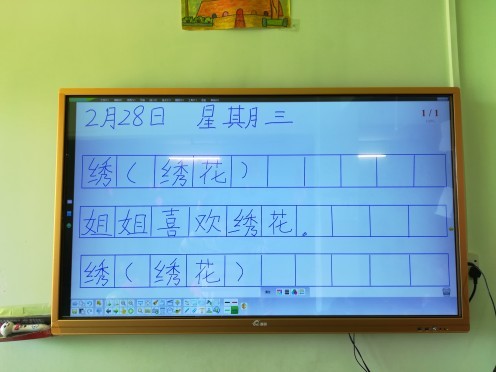 2月28日 星期三
1/1
绣（绣花）
姐姐喜欢绣花。
绣（绣花）